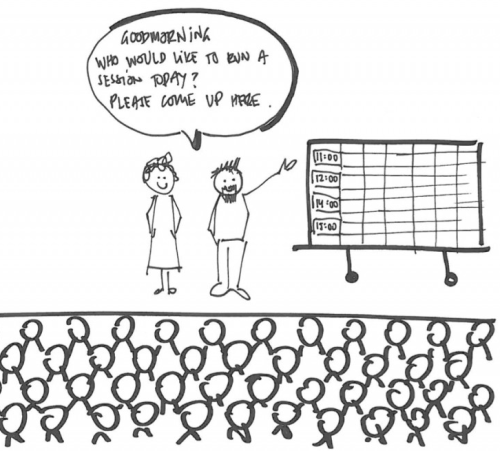 GOODMORNING
WHO WOULD LIKE TO RUN A
SESSION TODAY?
PLEASE COME UP HERE.
11:00
12:00
14:00
15:00